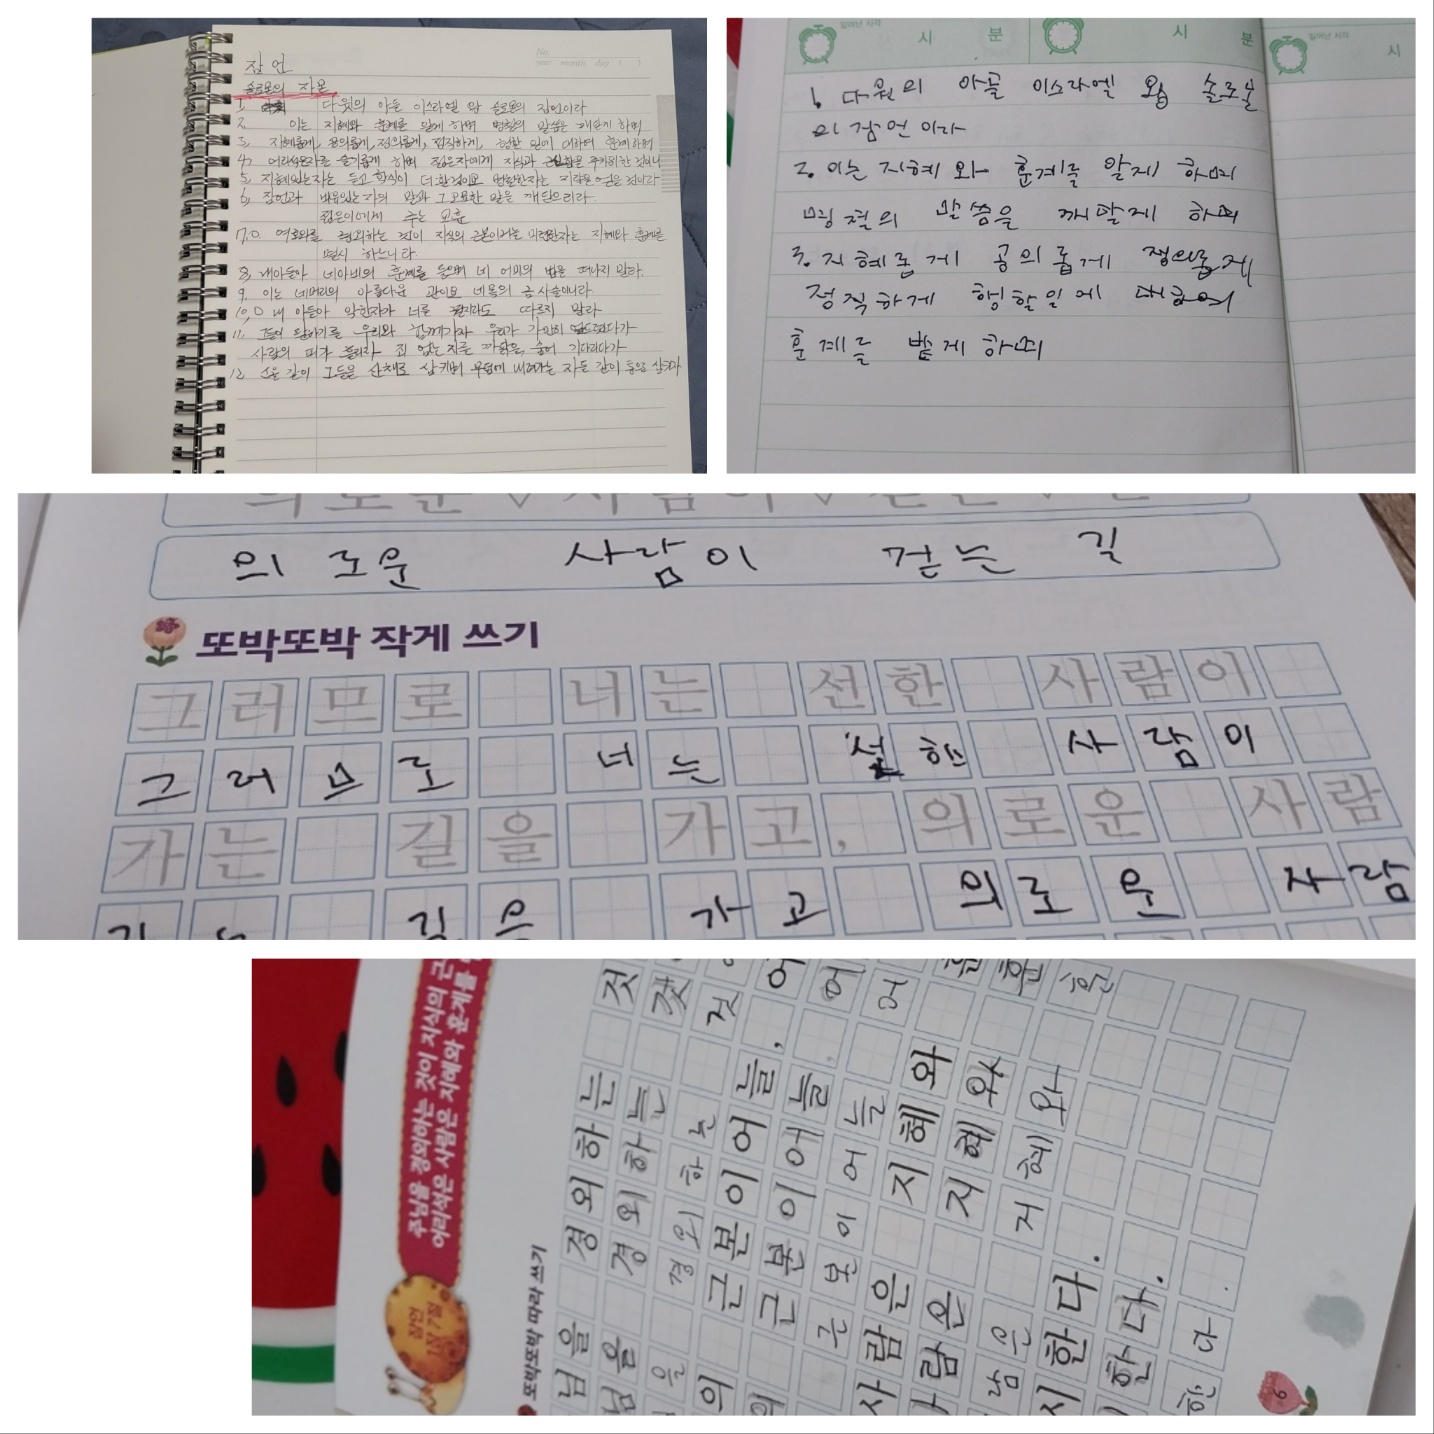 잠언
솔로몬의 자온
1. 다윗의 아들 이스라엘 왕 솔로몬의 잠언이라
2. 이는 지혜와 훈계를 알게 하며 명철의 말씀을 깨닫게 하며
3. 지혜롭게, 공의롭게, 정의롭게, 정직하게, 행할 일에 대하여 훈계하며
4. 어리석은자를 슬기롭게 하며 젊은자에게 지식과 근신함을 주기위한 것이니
5. 지혜있는자는 듣고 학식이 더할것이요 명철한자는 지략을 얻을 것이라
6. 잠언과 비유와 지혜있는자의 말과 그 오묘한 말을 깨달으리라
젊은이에게 주는 교훈
7. 여호와를 경외하는 것이 지식의 근본이거늘 미련한자는 지혜와 훈계를
멸시 하느니라
8. 내아들아 네아비의 훈계를 들으며 네 어미의 법을 떠나지 말라
9. 이는 네머리의 아름다운 관이요 네목의 금사슬이니라
10. 내 아들아 악한자가 너를 따르지 말라
11. 우리와 함께가자 우리가 가만히
사람의 피를 흘리자 죄 없는 자를 까닭없이 숨어 기다리다가
12. 스올 같이 그들을 산채로 삼키며 무덤에 내려가는 자들 같이 통으로 삼키자
일어난 시각 시 분
일어난 시각 시 분
일어난 시각 시
1. 다윗의 아들 이스라엘 왕 솔로몬
의 잠언 이라
2. 이는 지혜 와 훈계를 알게 하며
명철의 말씀을 깨닫게 하며
3. 지혜롭게 공의롭게 정의롭게
정직하게 행할일에 대하여
훈계를 받게 하며
의로운 사람이 걷는 길
의로운 사람이 걷는 길
또박또박 작게 쓰기
그러므로 너는 선한 사람이
그러므로 너는 선한 사람이
가는 길을 가고, 의로운 사람
가는 길을 가고 의로운 사람
주님을 경외하는 것이 지식의 근
어리석은 사람은 지혜와 훈계를
잠언
1장 7절
또박또박 따라 쓰기
님을 경외하는 것
님을 경외하는 것
을 경외하는 것
의 근본이어늘, 어
의 근본이어늘, 어
근본이어늘 어
사람은 지혜와 훈
사람은 지혜와 훈
람은 지혜와 훈
시한다.
시한다.
한다.
6